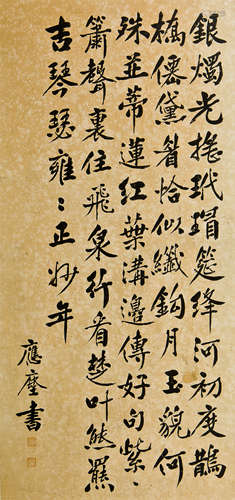 銀燭光搖玳瑁筵絳河初度鵲
橋僊黛眉恰似纖鈎月玉貌何
殊並蒂蓮紅葉溝邊傳好句紫
簫聲裏住飛泉行看梦叶熊羆
吉琴瑟雍〻正妙年
應書